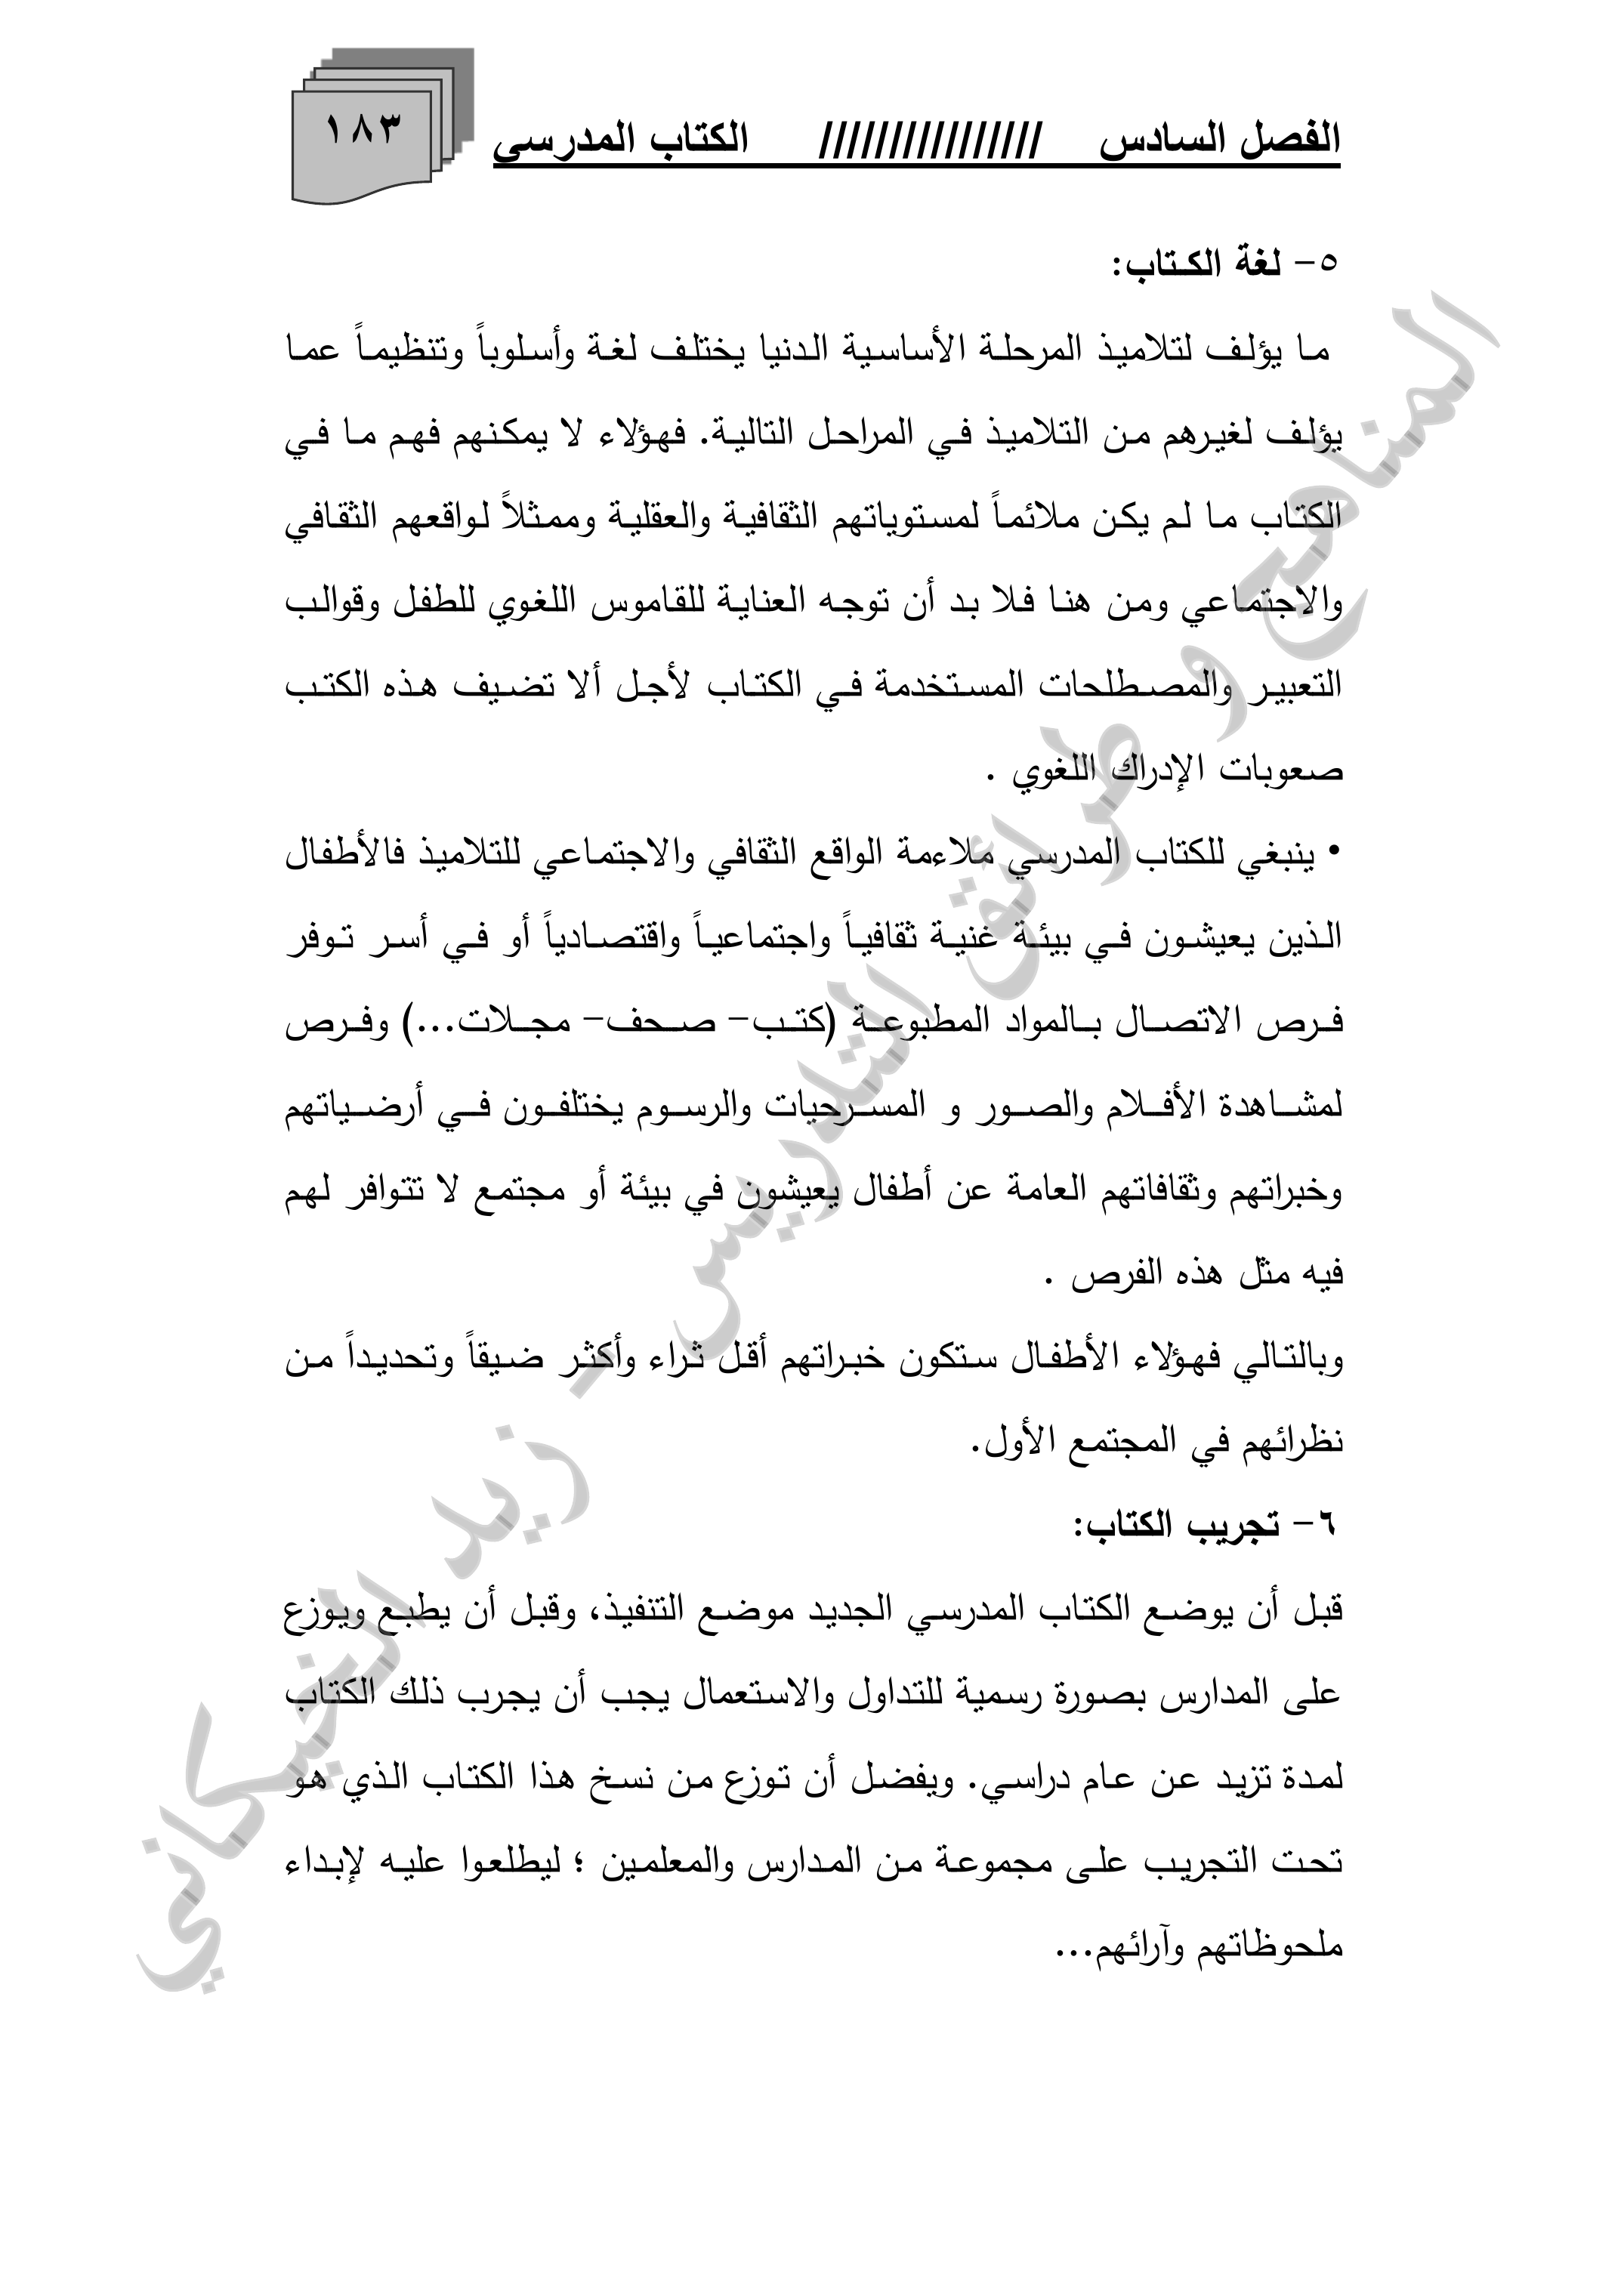 الفصل السادس //////////////// الكتاب المدرسي
١٨٣
٥- لغة الكتاب:
ما يؤلف لتلاميذ المرحلة الأساسية الدنيا يختلف لغة وأسلوباً وتنظيماً عما
يؤلف لغيرهم من التلاميذ في المراحل التالية. فهؤلاء لا يمكنهم فهم ما في
الكتاب ما لم يكن ملائماً لمستوياتهم الثقافية والعقلية وممثلاً لواقعهم الثقافي
والاجتماعي ومن هنا فلا بد أن توجه العناية للقاموس اللغوي للطفل وقوالب
التعبير والمصطلحات المستخدمة في الكتاب لأجل ألا تضيف هذه الكتب
صعوبات الإدراك اللغوي .
• ينبغي للكتاب المدرسي ملاءمة الواقع الثقافي والاجتماعي للتلاميذ فالأطفال
الذين يعيشون في بيئة غنية ثقافياً واجتماعياً واقتصادياً أو في أسر توفر
فرص الاتصال بالمواد المطبوعة (كتب- صحف- مجلات...) وفرص
لمشاهدة الأفلام والصور و المسرحيات والرسوم يختلفون في أرضياتهم
وخبراتهم وثقافاتهم العامة عن أطفال يعيشون في بيئة أو مجتمع لا تتوافر لهم
فيه مثل هذه الفرص .
وبالتالي فهؤلاء الأطفال ستكون خبراتهم أقل ثراء وأكثر ضيقاً وتحديداً من
نظرائهم في المجتمع الأول.
٦- تجريب الكتاب:
قبل أن يوضع الكتاب المدرسي الجديد موضع التنفيذ، وقبل أن يطبع ويوزع
على المدارس بصورة رسمية للتداول والاستعمال يجب أن يجرب ذلك الكتاب
لمدة تزيد عن عام دراسي. ويفضل أن توزع من نسخ هذا الكتاب الذي هو
تحت التجريب على مجموعة من المدارس والمعلمين ؛ ليطلعوا عليه لإبداء
ملحوظاتهم وآرائهم...
المناهج و طرائق التدريس - زيد الخيكاني